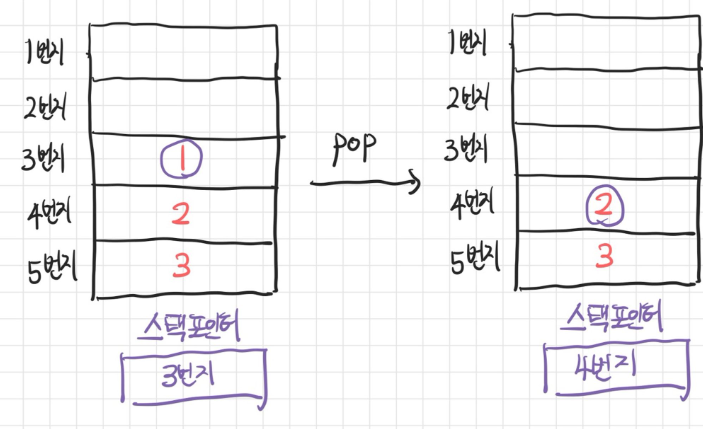 1번지
2번지
3번지 1
4번지 2
5번지 3
스택포인터
3번지
POP
1번지
2번지
3번지
4번지 2
5번지 3
스택포인터
4번지